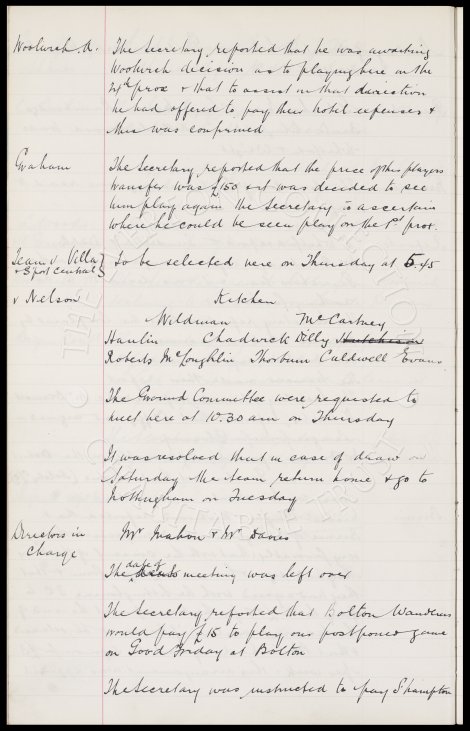 Woolwich A. The Secretary reported that he was awaiting
Woolwich decision as to playing here on the
24th prox & that to assist in that direction
he had offered to pay their hotel expenses &
this was confirmed
Graham The Secretary reported that the price of this players
transfer was £150 & it was decided to see
him play again the Secretary to ascertain
where he could be seen play on the 1st prox.
Team v Villa To be selected here on Thursday at 5.45
& S'port Central
v Nelson Kitchen
Wildman McCartney
Hanlin Chadwick Dilly Hutchison
Roberts McLoughlin Thorburn Caldwell Evans
The Ground Committee were requested to
meet here at 10.30 am on Thursday
It was resolved that in case of draw on
Saturday the team return home & go to
Nottingham on Tuesday
Directors in Mr Mahon & Mr Davies
Charge
The date of meeting was left over
The Secretary reported that Bolton Wanderers
would pay £15 to play our postponed game
on Good Friday at Bolton
The Secretary was instructed to pay S'hampton